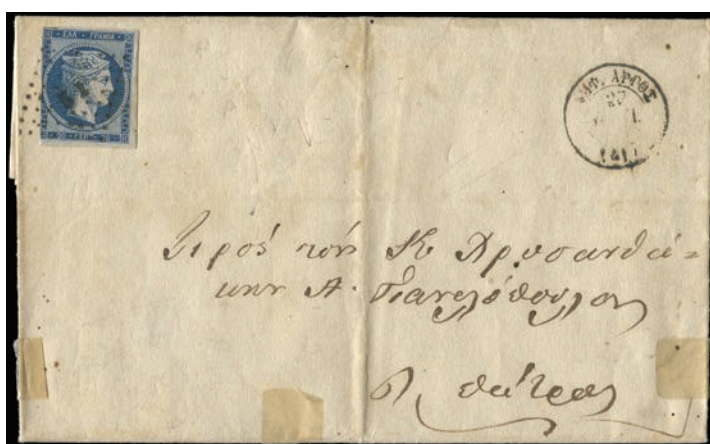 ΕΛΛ ΓΡΑΜΜ
20 ΛΕΠΤ 20
ΑΡΓΟΣ
27
(41)
Πρὸς τὸν Κο Χρυσανθά=
κην Α. Κανελόπουλον
Πάτρας